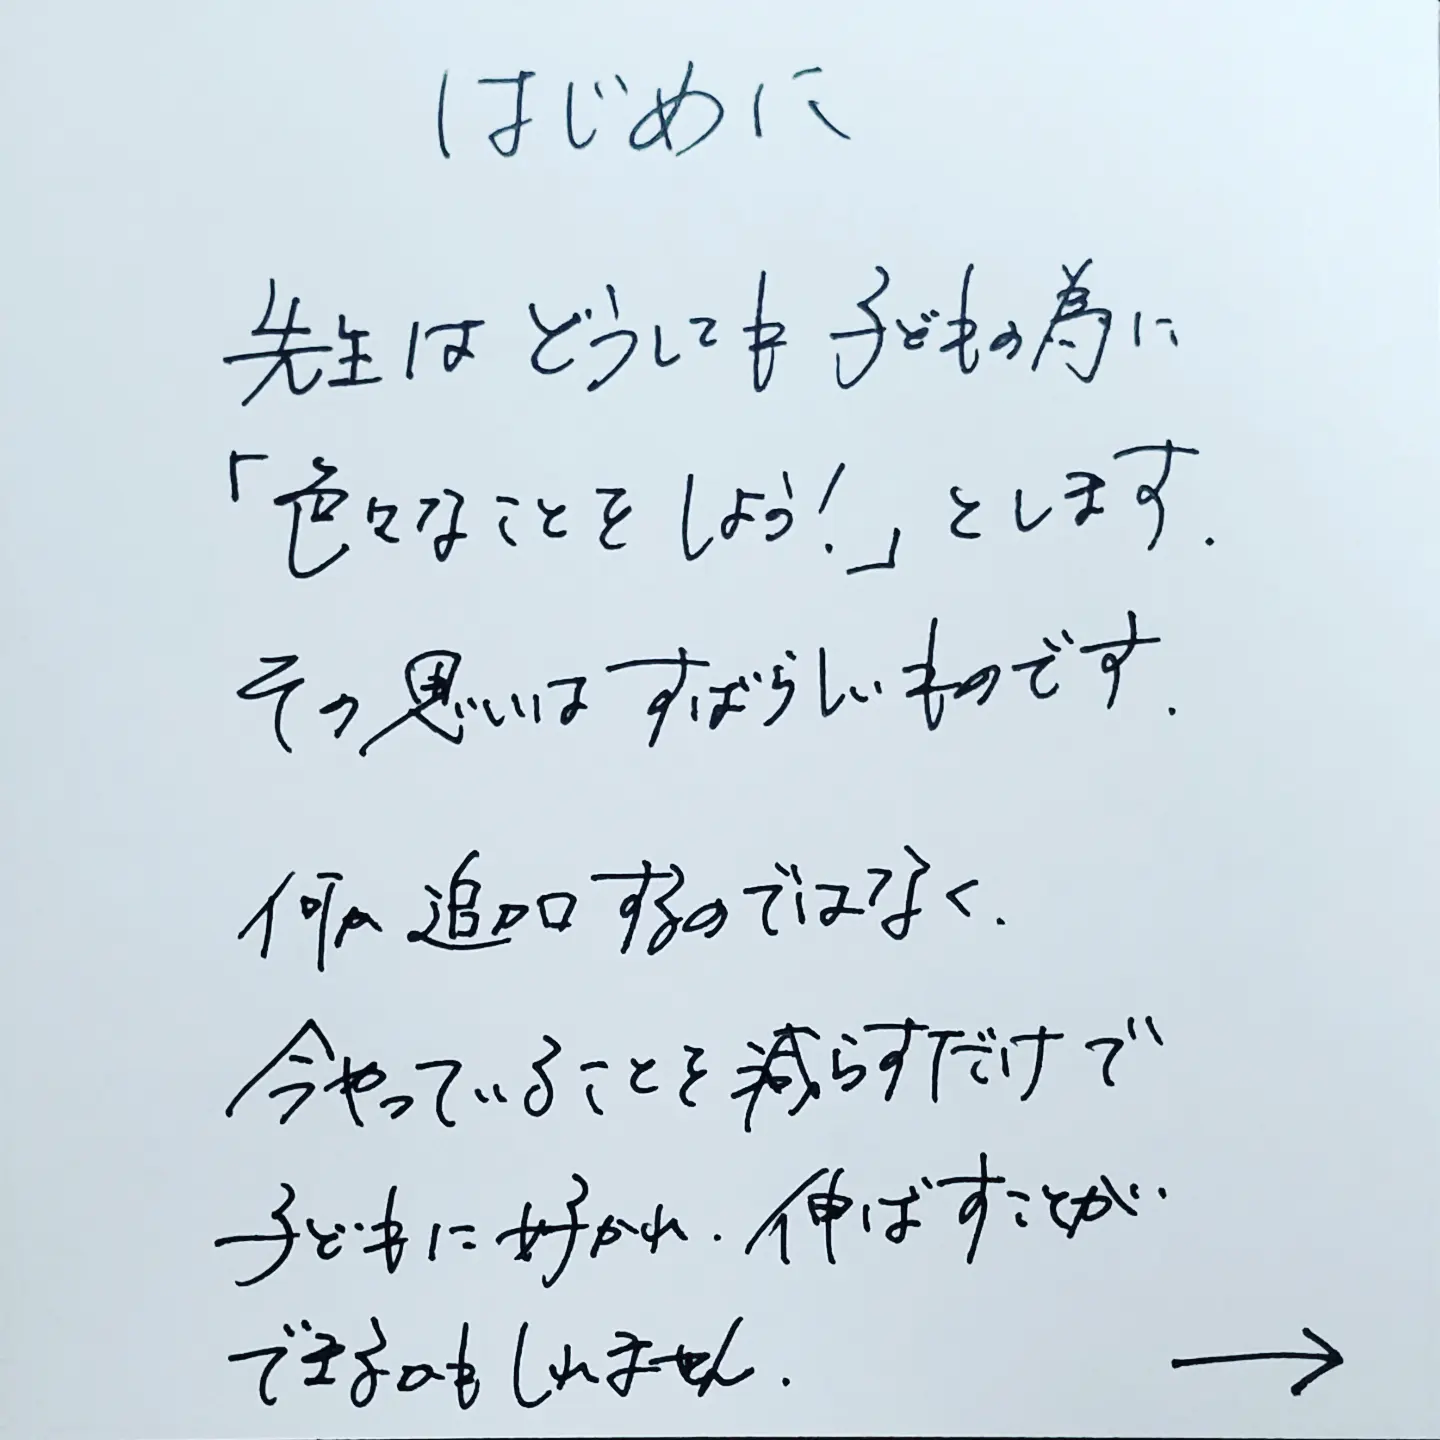 はじめに
先生はどうしても子どもの為に
「色々なことをしよう!」とします.
その思いはすばらしいものです.
何か追加するのではなく.
今やっていることを減らすだけで
子どもに好かれ.伸ばすことが
できるかもしれません.
→